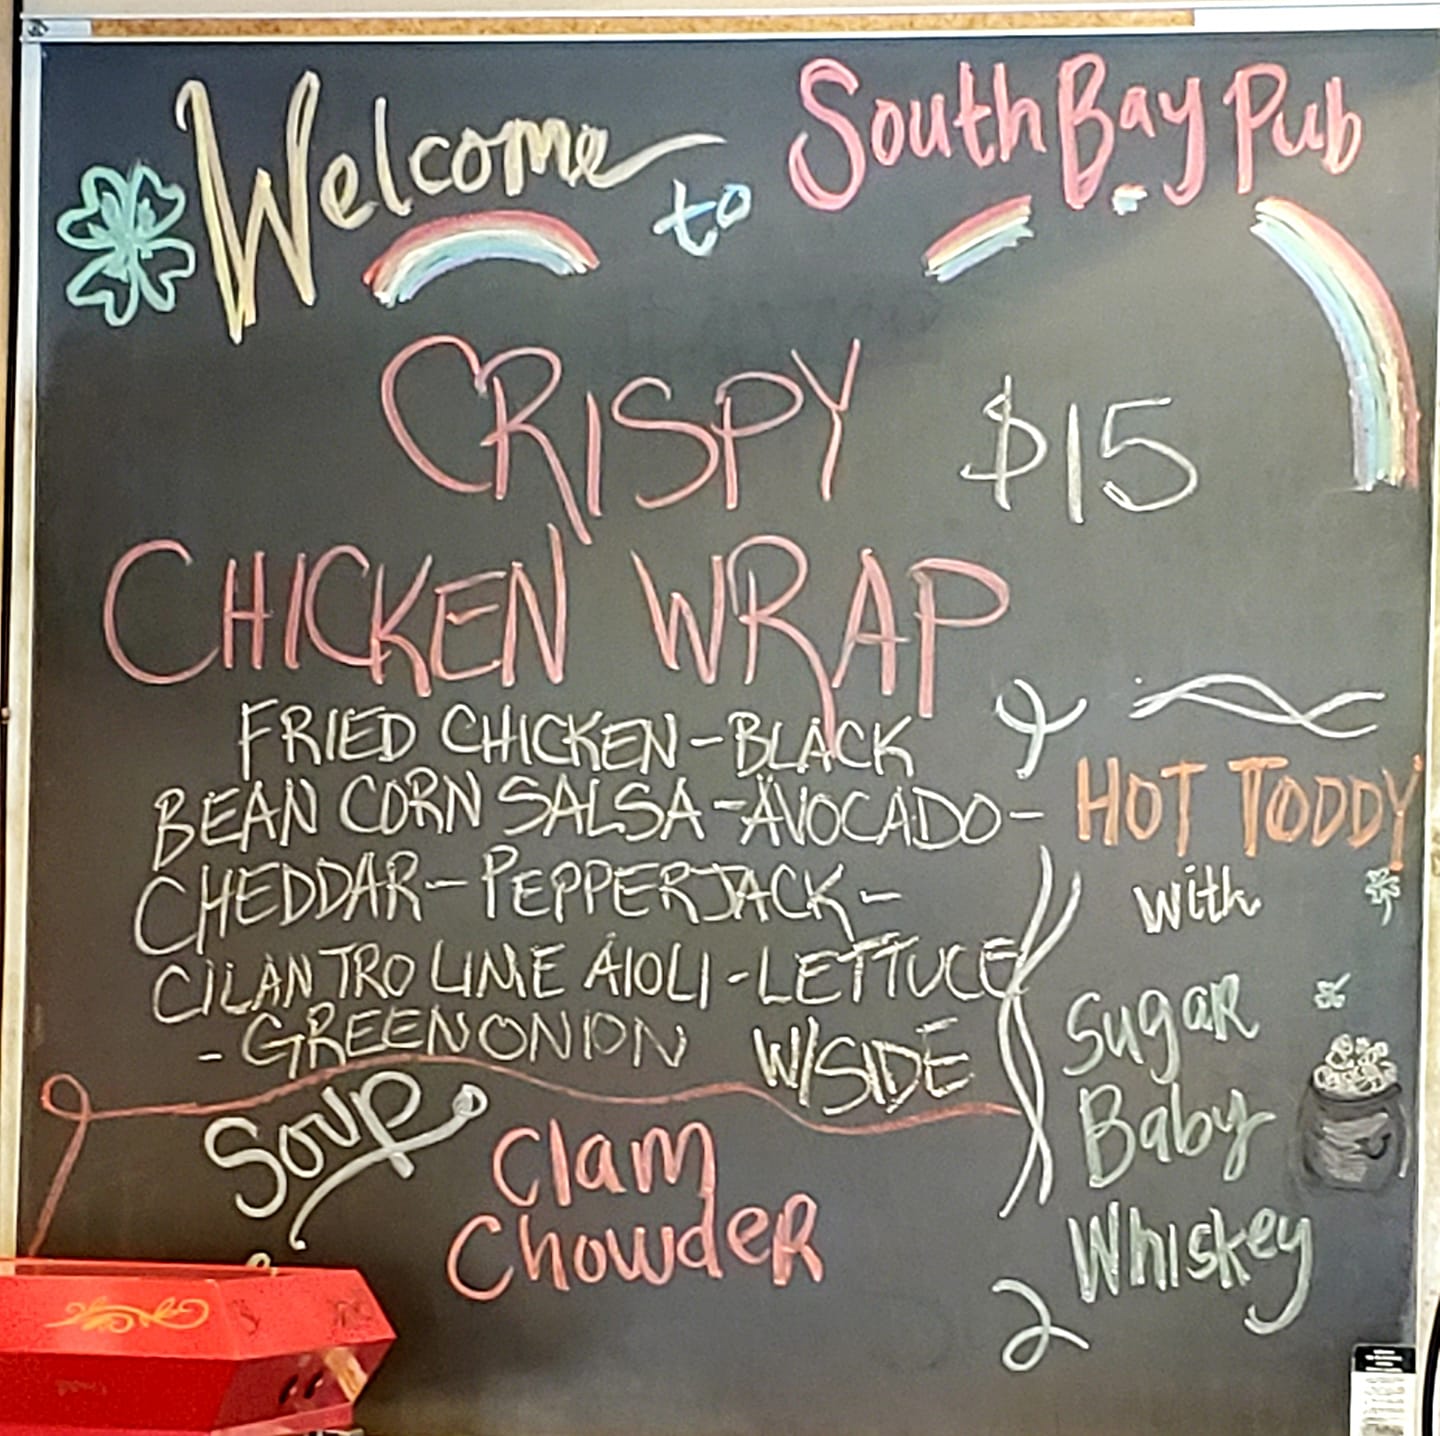 Welcome to South Bay Pub
CRISPY $15
CHICKEN WRAP
FRIED CHICKEN - BLACK
BEAN CORN SALSA - AVOCADO -
CHEDDAR - PEPPERJACK -
CILANTRO LIME AIOLI - LETTUCE
- GREEN ONION W/SIDE
Soup
Clam
Chowder
HOT TODDY
with
Sugar
Baby
Whiskey